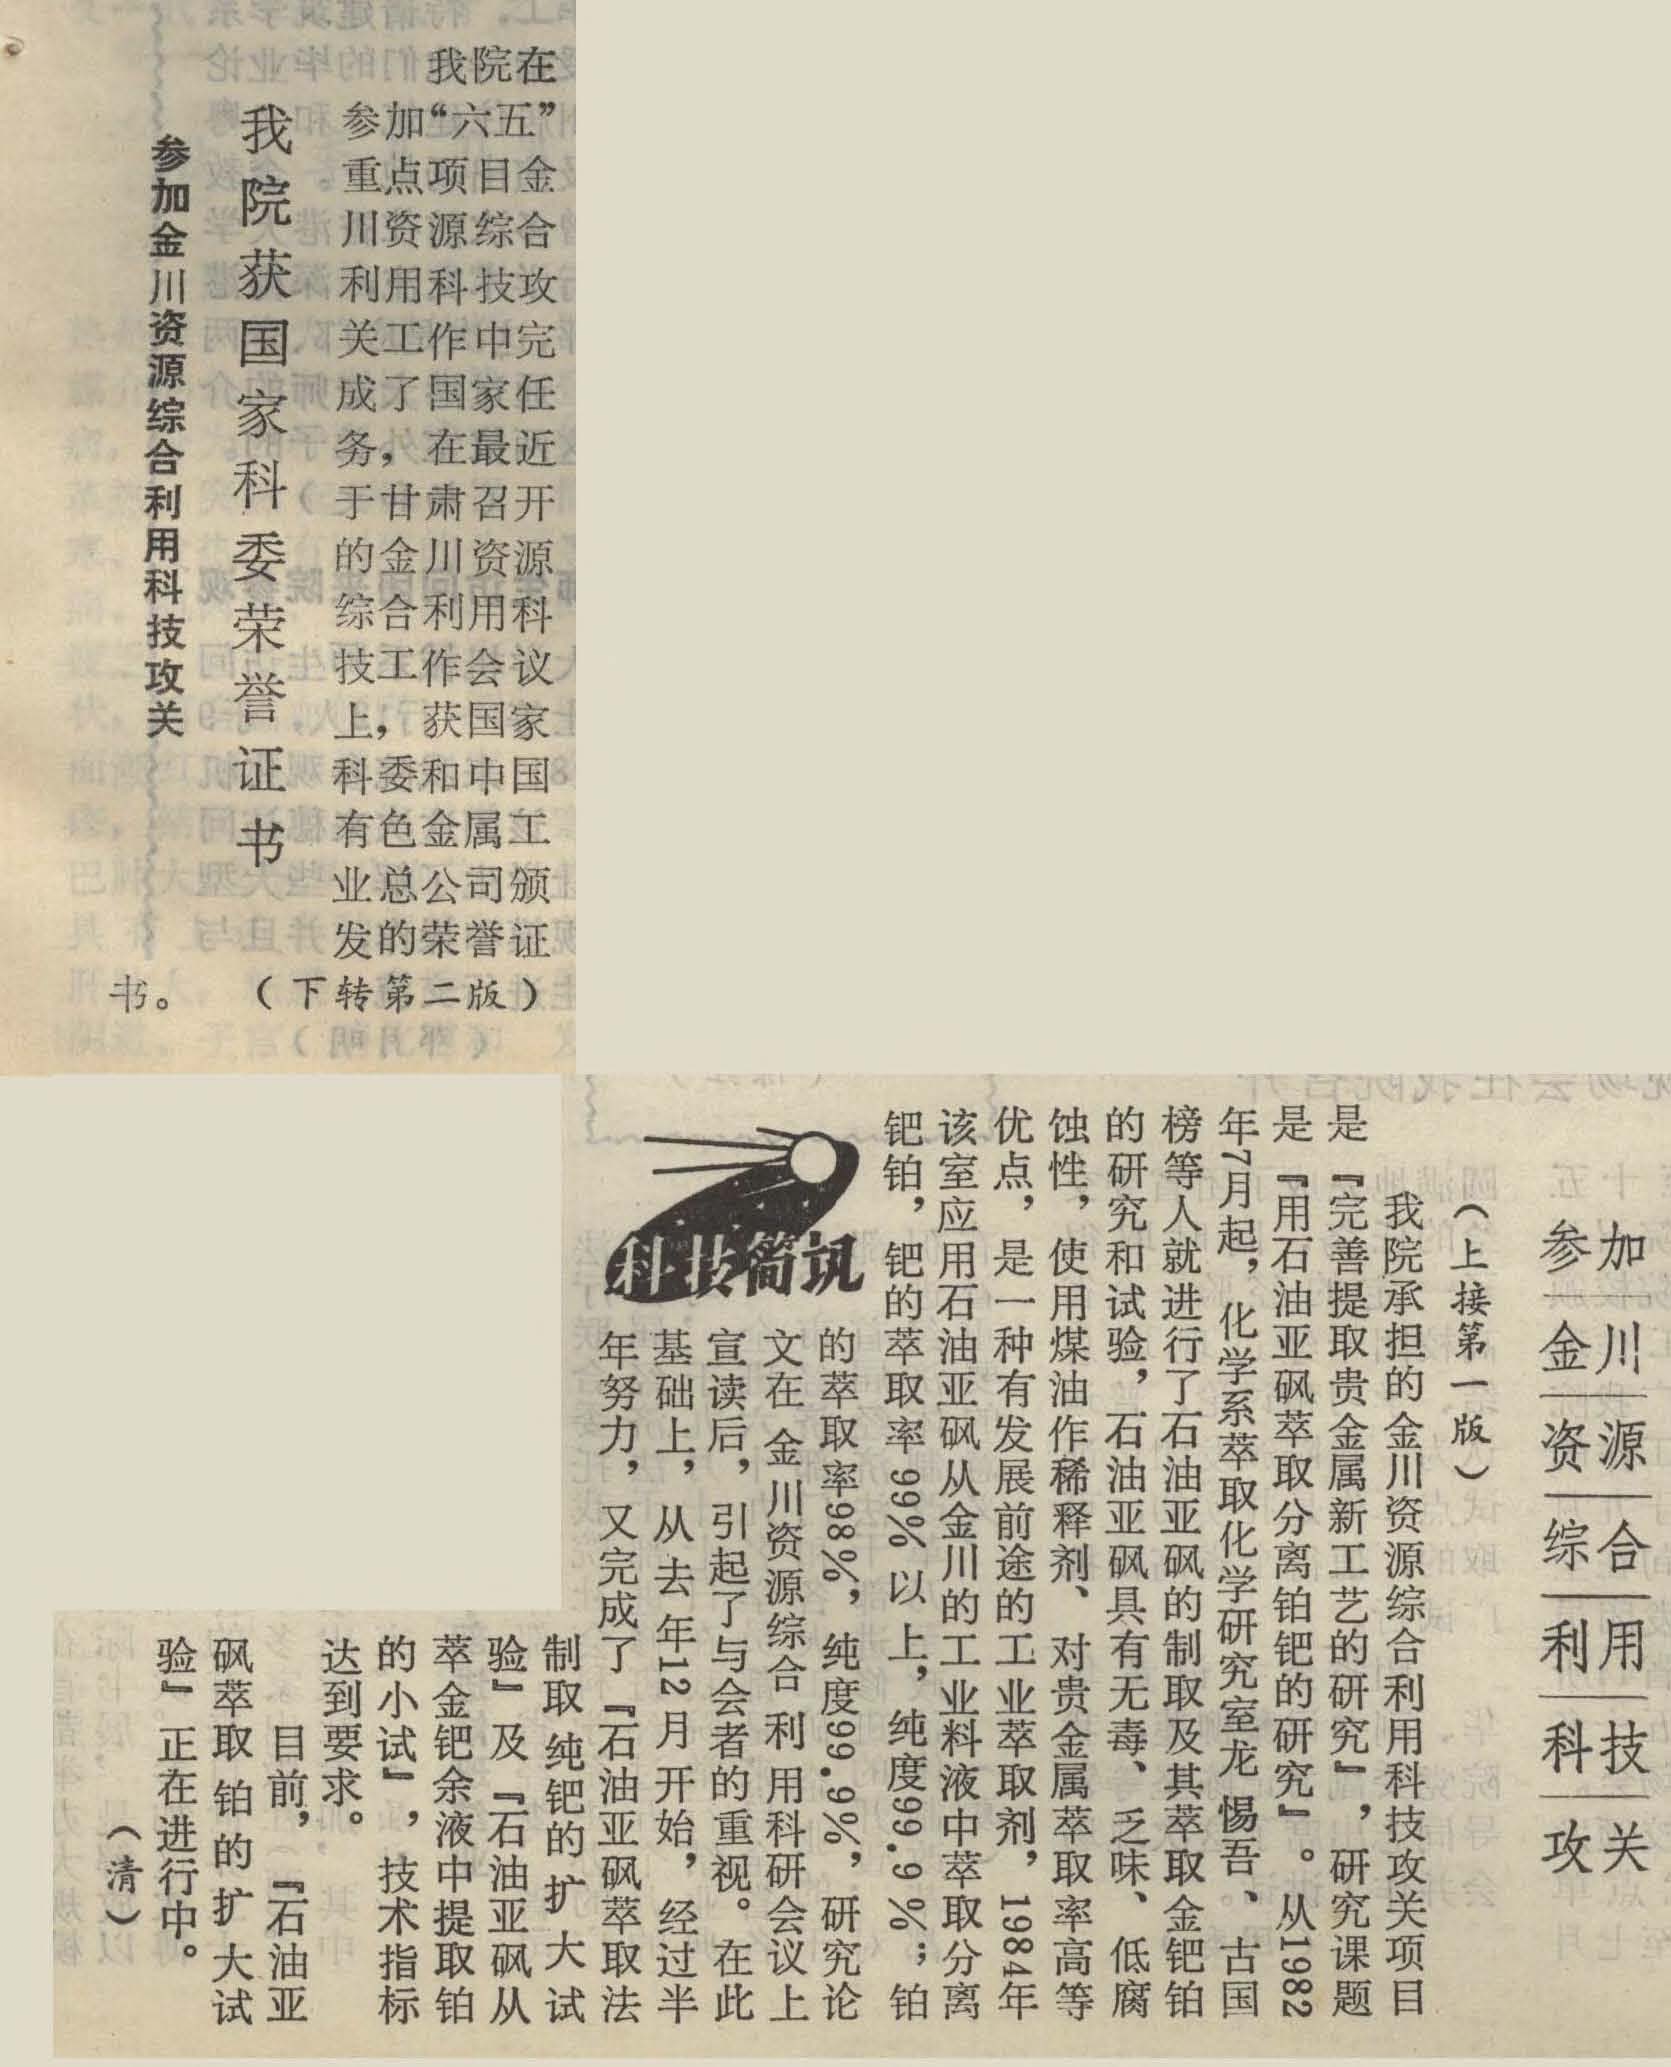 参加金川资源综合利用科技攻关
我院获国家科委荣誉证书
我院在
参加“六五”
重点项目金
川资源综合
利用科技攻
关工作中完
成了国家任
务，在最近
于甘肃召开
的金川资源
综合利用科
技工作会议
上，获国家
科委和中国
有色金属工
业总公司颁
发的荣誉证
书。（下转第二版）
参加
金川
资源
综合
利用
科技
攻关
（上接第一版）
我院承担的金川资源综合利用科技攻关项目
是『完善提取贵金属新工艺的研究』，研究课题
是『用石油亚砜萃取分离铂钯的研究』。从1982
年7月起，化学系萃取化学研究室龙惕吾、古国
榜等人就进行了石油亚砜的制取及其萃取金钯铂
的研究和试验，石油亚砜具有无毒、乏味、低腐
蚀性，使用煤油作稀释剂、对贵金属萃取率高等
优点，是一种有发展前途的工业萃取剂，1984年
该室应用石油亚砜从金川的工业料液中萃取分离
钯铂，钯的萃取率99%以上，纯度99.9%；铂
的萃取率98%，纯度99.9%，研究论
文在金川资源综合利用科研会议上
宣读后，引起了与会者的重视。在此
基础上，从去年12月开始，经过半
年努力，又完成了『石油亚砜萃取法
制取纯钯的扩大试
验』及『石油亚砜从
萃金钯余液中提取铂
的小试』，技术指标
达到要求。
目前，『石油亚
砜萃取铂的扩大试
验』正在进行中。
（清）
科技简讯